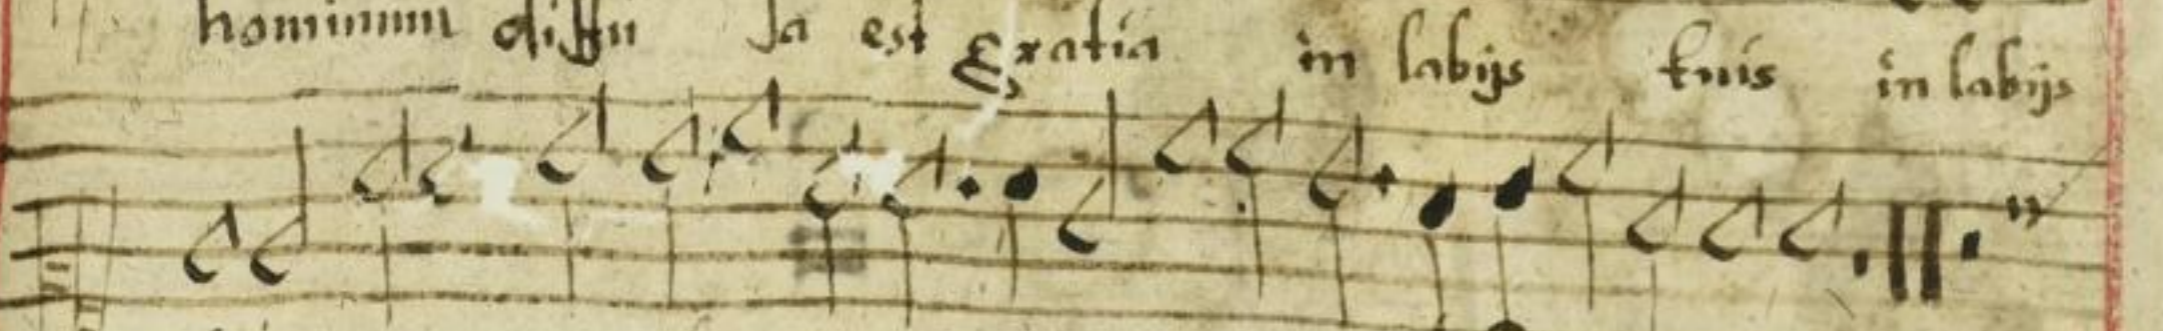 hominum diffu sa est gratia in labijs tuis in labijs